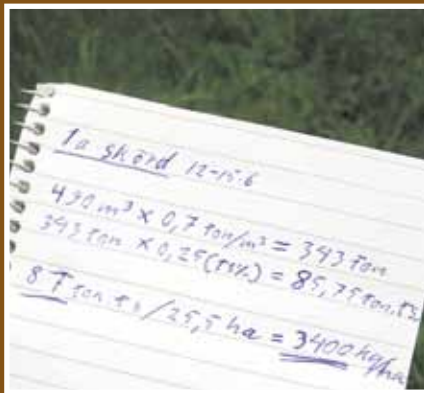 1a skörd 12-15.6
490 m³ x 0,7 ton/m³ = 343 ton
343 ton x 0,25 (ts%) = 85,75 ton ts
87 ton ts/25,5 ha = 3400 kg/ha